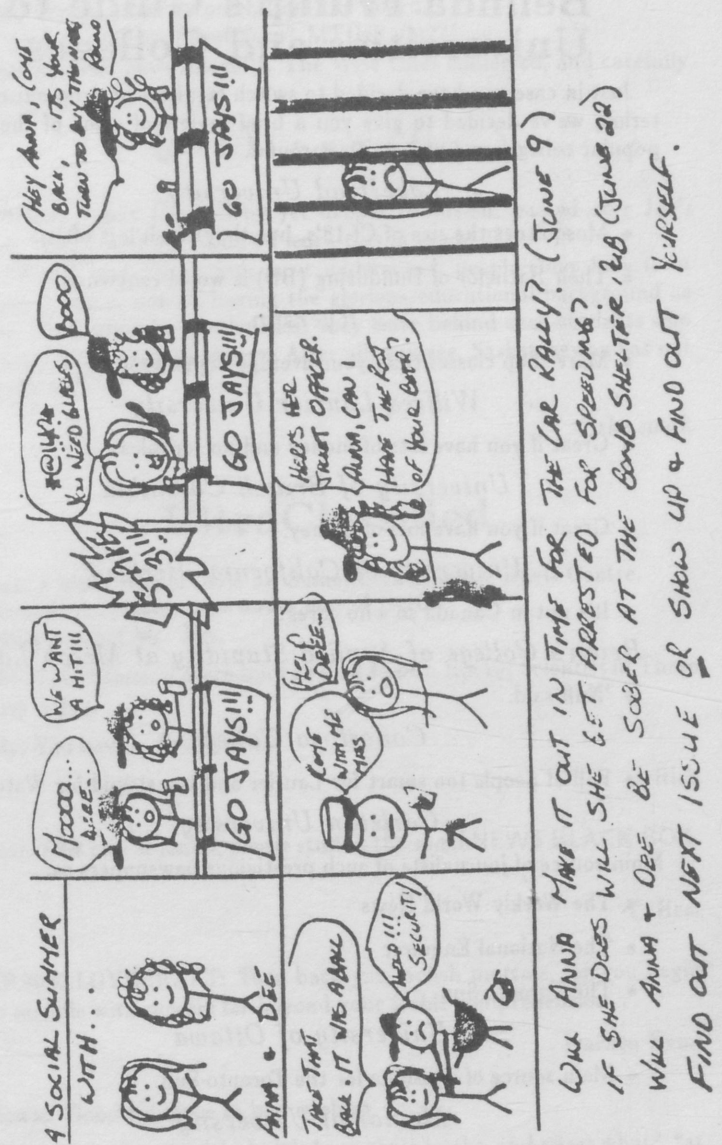 A SOCIAL SUMMER
WITH
ANNA + DEE
WE WANT
A HIT!!!
GO JAYS!!!
YOU NEED GLASSES
BOOO
GO JAYS!!!
HEY ANNA COME
BACK, IT'S YOUR
TURN TO BUY THE NEXT
ROUND
GO JAYS!!!
TAKE THAT YOU
IT WAS A BALL
ANNA!!!
SECURITY!
COME
WITH ME
HELP
DEEE-
HERE'S HER
TICKET OFFICER.
ANNA, CAN I
HAVE THE REST
OF YOUR BEER?
WILL ANNA MAKE IT OUT IN TIME FOR THE CAR RALLY? (JUNE 9)
IF SHE DOES WILL SHE GET ARRESTED FOR SPEEDING?
WILL ANNA + DEE BE SOBER AT THE BOMB SHELTER PUB JUNE 22?
FIND OUT NEXT ISSUE OR SHOW UP + FIND OUT YOURSELF.